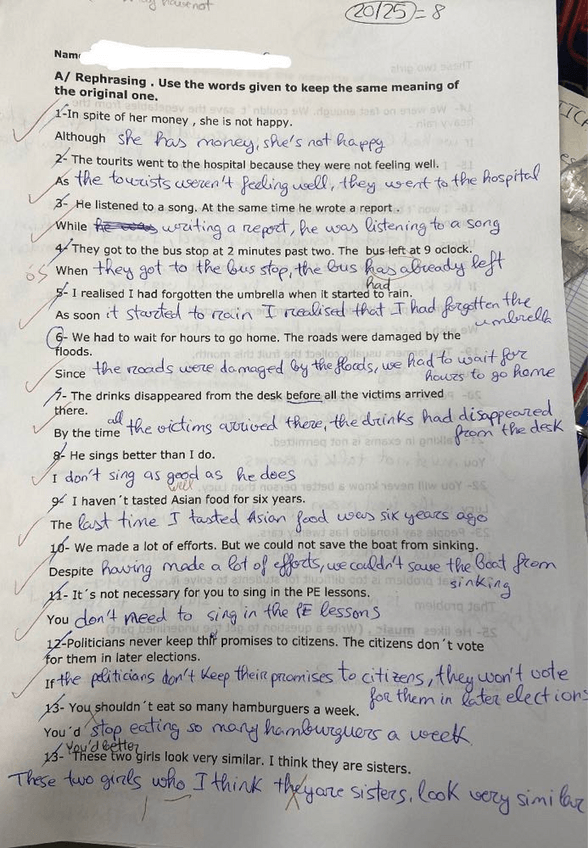 house not
20/25 = 8
Nam
A/ Rephrasing . Use the words given to keep the same meaning of
the original one.
1-In spite of her money , she is not happy.
Although she has money, she's not happy
2- The tourits went to the hospital because they were not feeling well.
As the tourists weren't feeling well, they went to the hospital
3- He listened to a song. At the same time he wrote a report .
While he was writing a report, he was listening to a song
4- They got to the bus stop at 2 minutes past two. The bus left at 9 oclock.
0'5 When they got to the bus stop, the bus has already left
had
5- I realised I had forgotten the umbrella when it started to rain.
As soon it started to rain I realised that I had forgotten the
umbrella
6- We had to wait for hours to go home. The roads were damaged by the
floods.
Since the roads were damaged by the floods, we had to wait for
hours to go home
7- The drinks disappeared from the desk before all the victims arrived
there.
By the time all the victims arrived there, the drinks had disappeared
from the desk
8- He sings better than I do.
I don't sing as good as he does
well
9- I haven´t tasted Asian food for six years.
The last time I tasted Asian food was six years ago
10- We made a lot of efforts. But we could not save the boat from sinking.
Despite having made a lot of efforts, we couldn't save the Boat from
sinking
11- It´s not necessary for you to sing in the PE lessons.
You don't need to sing in the PE lessons
12-Politicians never keep thir promises to citizens. The citizens don´t vote
for them in later elections.
If the politicians don't keep their promises to citizens, they won't vote
for them in later elections
13- You shouldn´t eat so many hamburguers a week.
You'd stop eating so many hamburguers a week
You'd better
13- These two girls look very similar. I think they are sisters.
These two girls who I think they are sisters, look very similar